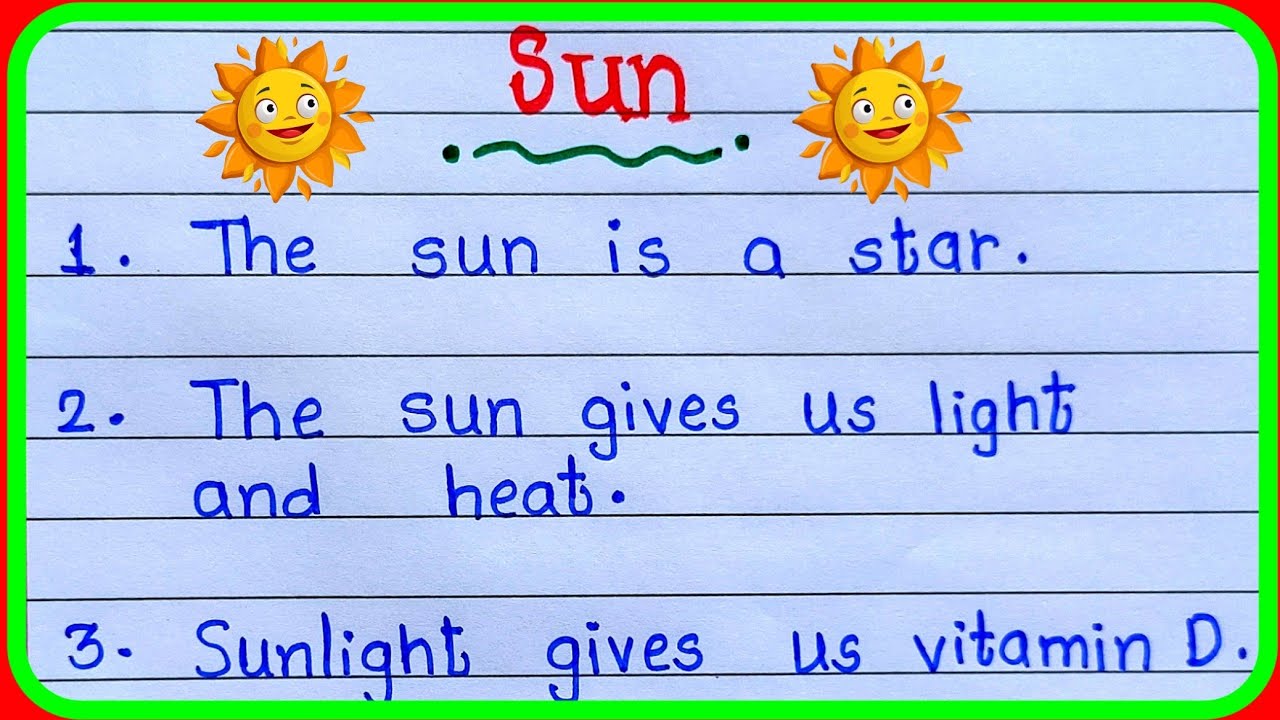 Sun
1. The sun is a star.
2. The sun gives us light
and heat.
3. Sunlight gives us vitamin D.